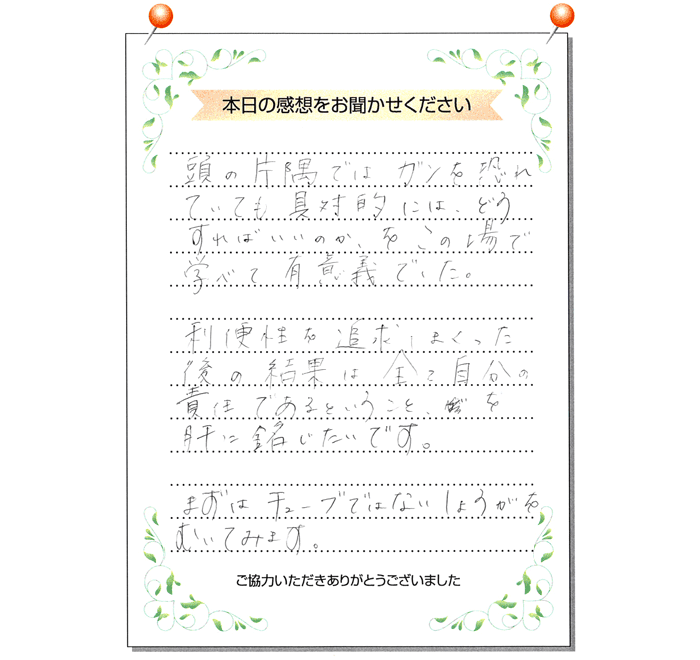 本日の感想をお聞かせください
頭の片隅では ガンを恐れ
ていても 具対的には、どう
すればいいのか、をこの場で
学べて有意義でした。
利便性を追求しまくった
後の結果は全て自分の
責任であるということ、を
肝に銘じたいです。
まずはチューブではないしょうがを
むいてみます。
ご協力いただきありがとうございました